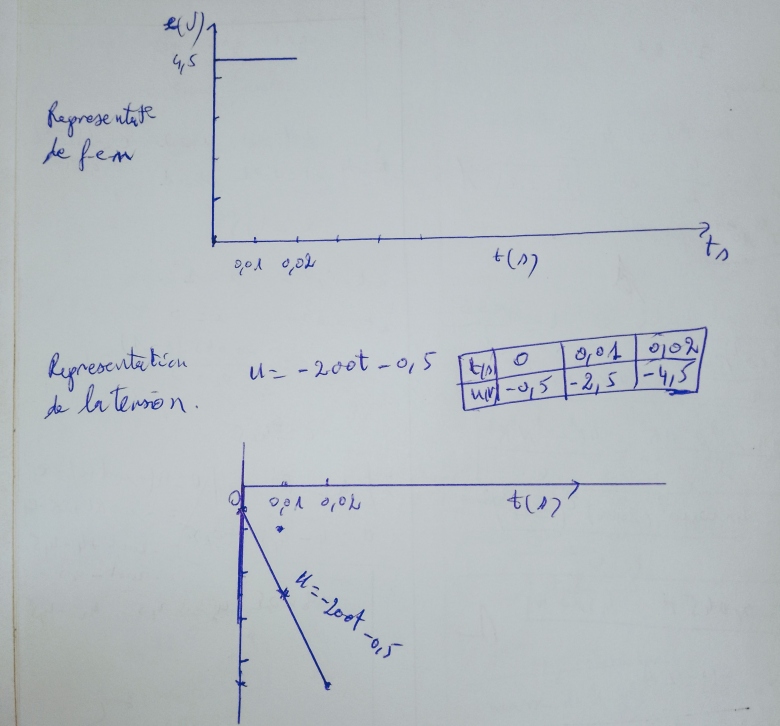 e(V)
4,5
Representate
de fem
0,01 0,02 t(s) ts
Representation
de la tension.
u = -200t - 0,5
t(s) 0 0,01 0,02
u(V) -0,5 -2,5 -4,5
0 0,01 0,02 t(s)
u = -200t - 0,5